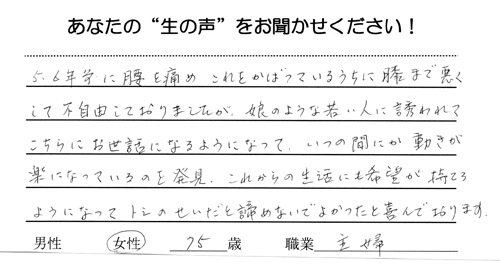 あなたの“生の声”をお聞かせください！
5.6年前に腰を痛め これをかばっているうちに膝まで悪く
して不自由しておりましたが、娘のような若い人に誘われて
こちらにお世話になるようになって、いつの間にか動きが
楽になっているのを発見、これからの生活にも希望が持てる
ようになって トシのせいだと諦めないでよかったと喜んでおります。
男性 女性 75歳 職業 主婦